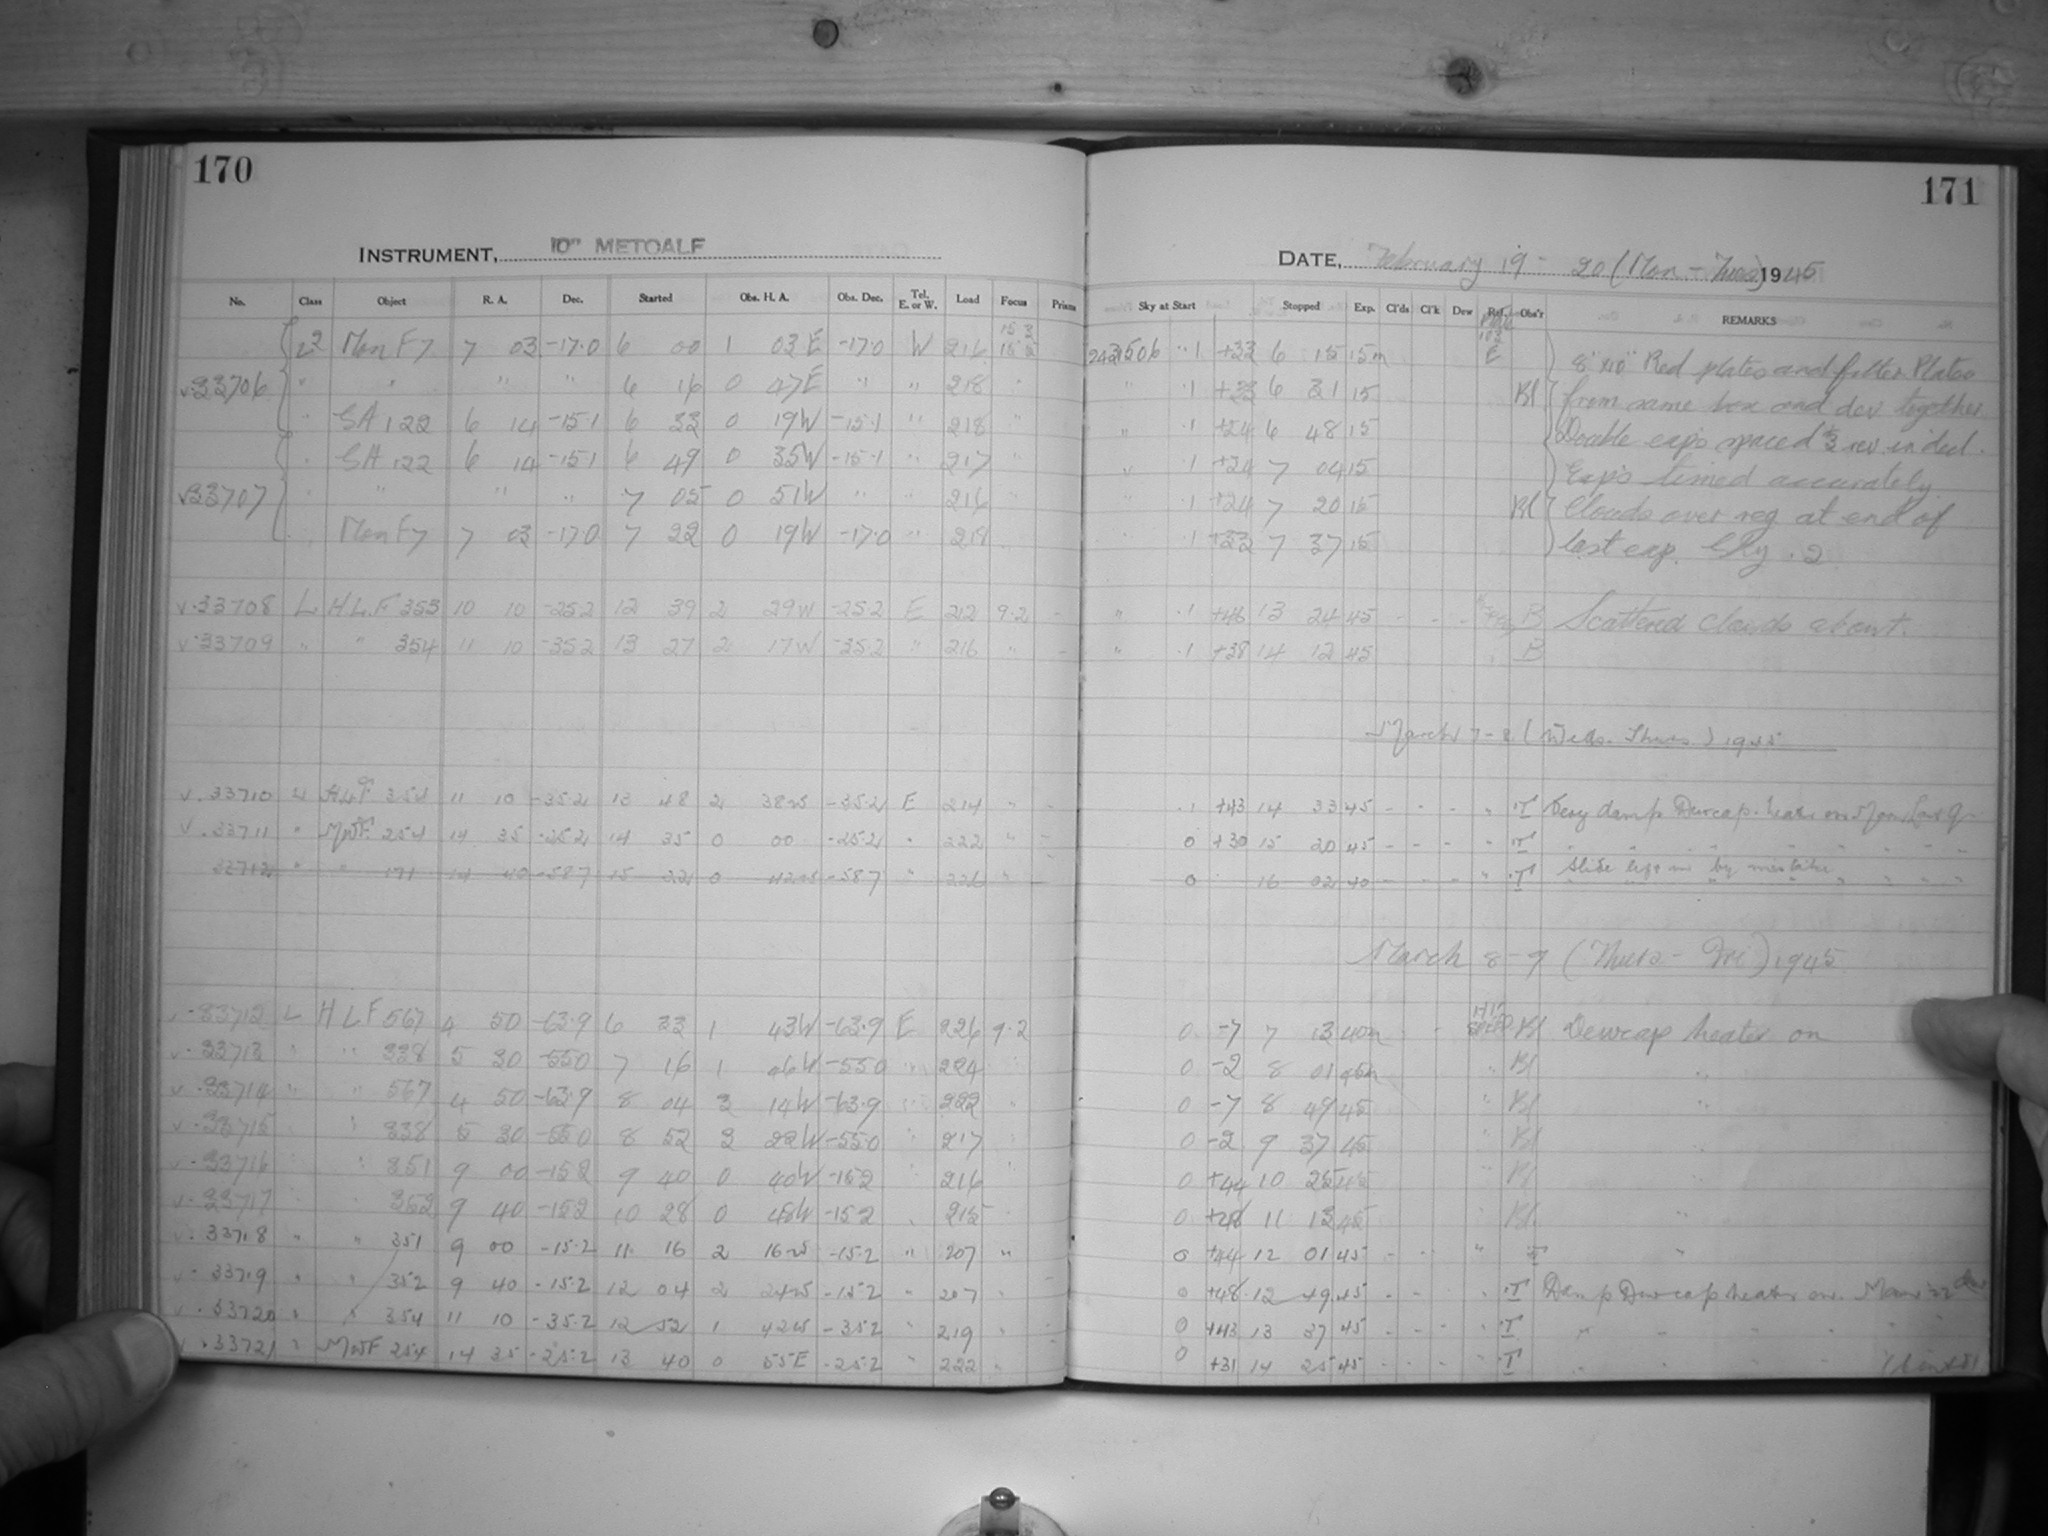 170
INSTRUMENT, 10" METCALF
No. Class Object R. A. Dec. Started Obs. H. A. Obs. Dec. Tel. E. or W. Load Focus Prisms
L2 Mon F7 7 03 -17.0 6 00 1 03 E -17.0 W 216
v33706 " " " " 6 16 0 47E " " 218 "
" SA 122 6 14 -15.1 6 33 0 19W -15.1 " 218 "
" SA 122 6 14 -15.1 6 49 0 35W -15.1 " 217 "
v33707 " " " " 7 05 0 51W " " 216 "
Mon F7 7 03 -17.0 7 22 0 19W -17.0 " 218
v.33708 L H.L.F 353 10 10 -25.2 12 39 2 29W -25.2 E 212 9.2 -
v.33709 " " 354 11 10 -35.2 13 27 2 17W -35.2 " 216 " -
v.33710 L HLF 354 11 10 -35.2 13 48 2 38W -35.2 E 214 " -
v.33711 " MWF 254 14 35 -25.2 14 35 0 00 -25.2 " 222 " -
33712 " " 171 14 40 -58.7 15 22 0 42W -58.7 " 226 " -
v.33712 L HLF 567 4 50 -63.9 6 33 1 43W -63.9 E 226 9.2
v.33713 " " 338 5 30 -55.0 7 16 1 46W -55.0 " 224
v.33714 " " 567 4 50 -63.9 8 04 3 14W -63.9 " 222 "
v.33715 " 338 5 30 -55.0 8 52 3 22W -55.0 " 217 "
v.33716 " 351 9 00 -15.2 9 40 0 40W -15.2 216
v.33717 352 9 40 -15.2 10 28 0 48W -15.2 " 215
v.33718 " " 351 9 00 -15.2 11 16 2 16W -15.2 " 207 "
v.33719 " " 352 9 40 -15.2 12 04 2 24W -15.2 " 207 "
v.33720 " " 354 11 10 -35.2 12 52 1 42W -35.2 " 219 " -
v.33721 " MWF 254 14 35 -25.2 13 40 0 55E -25.2 " 222 " -
171
DATE, February 19 - 20 (Mon - Tues) 1945
Sky at Start Stopped Exp. Cl'ds Cl'k Dew Ref. Obs'r REMARKS
2431506 " .1 +33 6 15 15m E 8"x10" Red plates and filter Plates
" .1 +33 6 31 15 Bl from same box and dev together
" .1 +24 6 48 15 Double exps spaced 3 rev in decl.
" .1 +24 7 04 15 Exps timed accurately
" .1 +24 7 20 15 Bl Clouds over reg at end of
" .1 +33 7 37 15 last exp. Sky .2
" .1 +46 13 24 45 - - - B Scattered clouds about.
" .1 +38 14 12 45 " B
March 7-8 (Weds. Thurs.) 1945
.1 +43 14 33 45 - - - " T Very damp Dewcap heater on
0 +30 15 20 45 - - - " T " " "
0 16 02 40 - - - " T Slide left in by mistake
March 8-9 (Thurs - Fri) 1945
0 -7 7 13 40m - Bl Dewcap heater on
0 -2 8 01 45m " Bl "
0 -7 8 49 45 " Bl "
0 -2 9 37 45 " Bl
0 +44 10 25 45 " Bl "
0 +48 11 13 45 Bl "
0 +44 12 01 45 - - " T "
0 +48 12 49 45 - - - " T Damp Dewcap heater on.
0 +43 13 37 45 - - - " T " " "
0 +31 14 25 45 - - - " T " " "